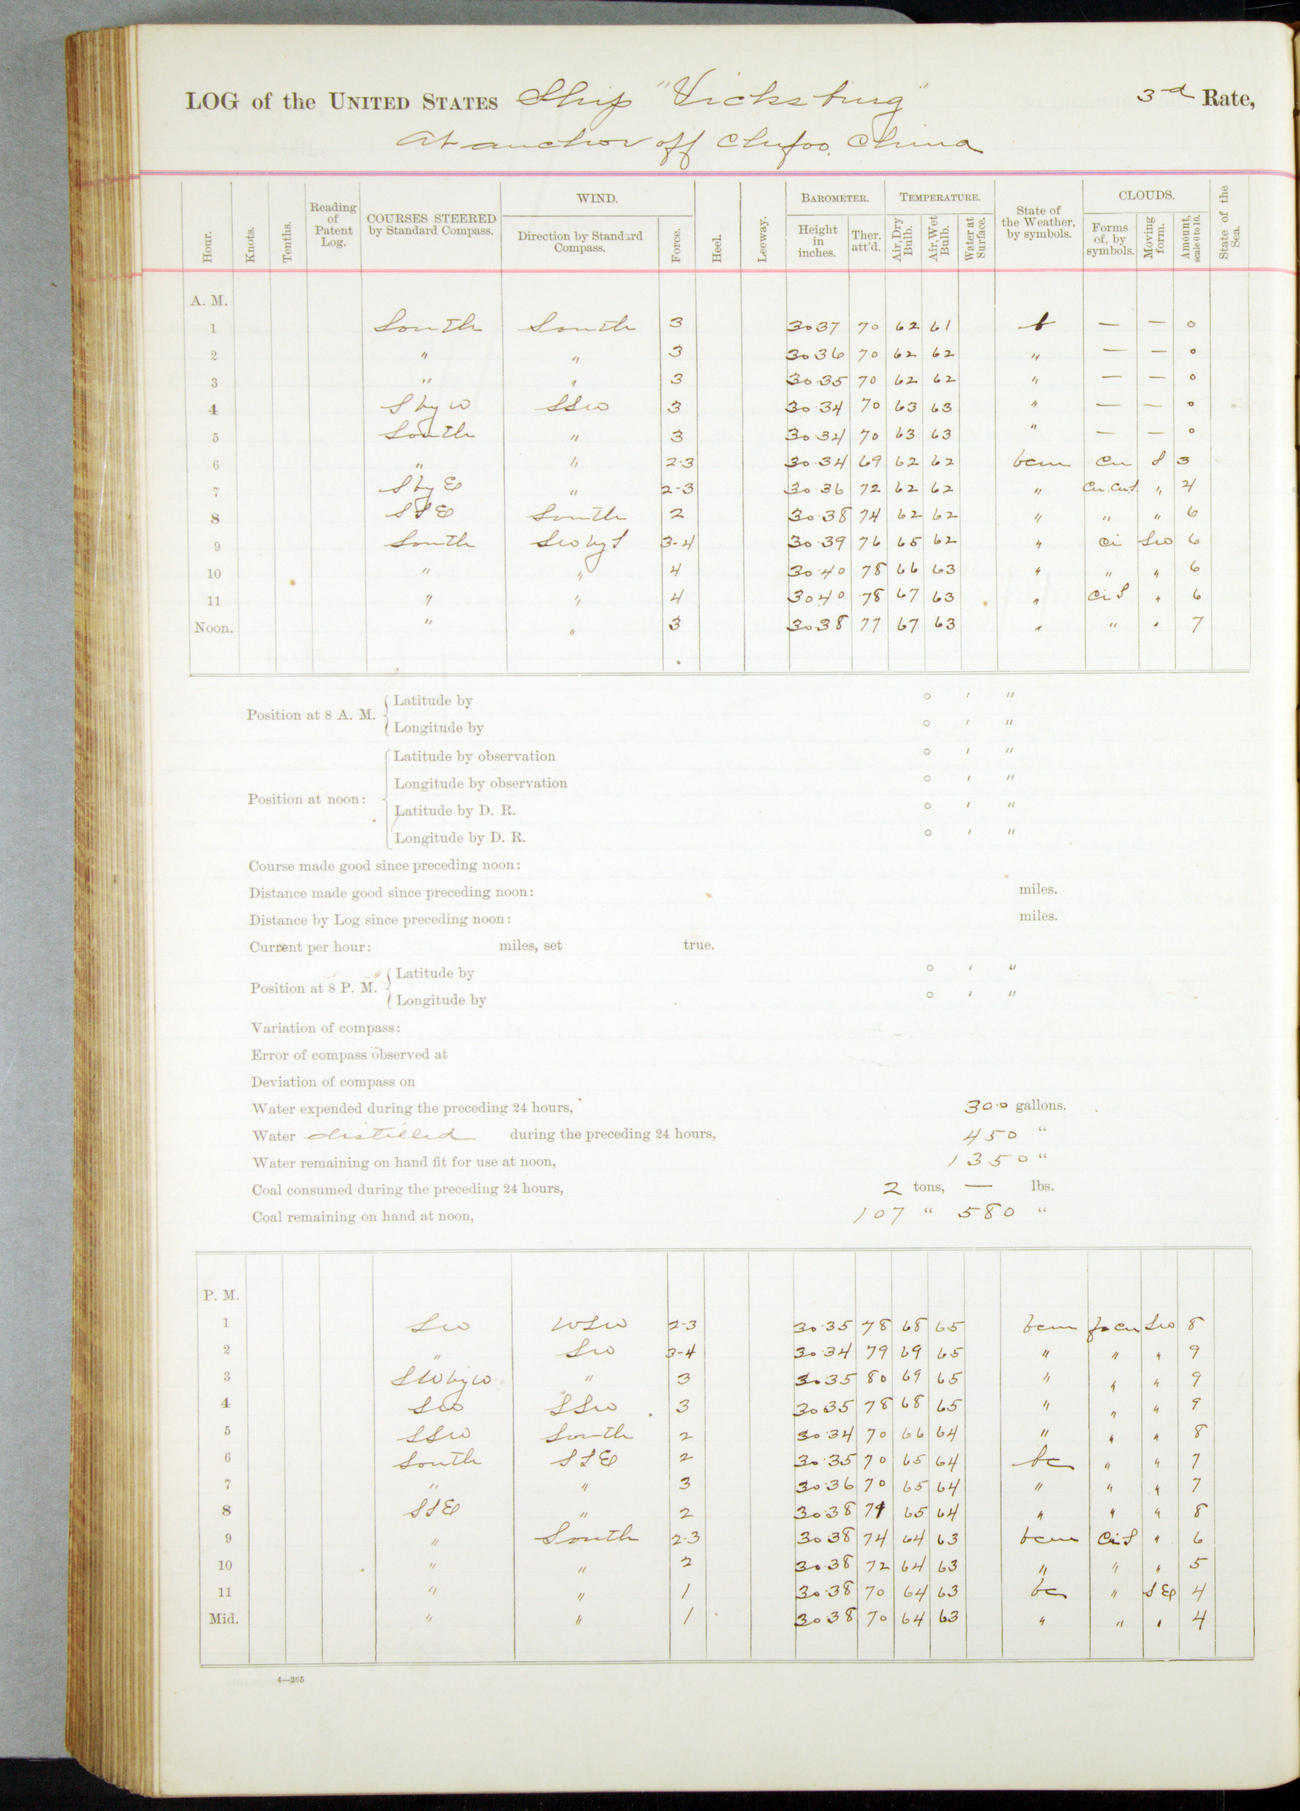 LOG of the UNITED STATES Ship "Vicksburg" 3rd Rate,
At anchor off Chefoo, China
Hour. Knots. Tenths. Reading of Patent Log. COURSES STEERED by Standard Compass. WIND. Direction by Standard Compass. Force. Heel. Leeway. BAROMETER. Height in inches. Ther. att'd. TEMPERATURE. Air, Dry Bulb. Air, Wet Bulb. Water at Surface. State of the Weather, by symbols. CLOUDS. Forms of, by symbols. Moving form. Amount, scale 0 to 10. State of the Sea.
A. M.
1 South South 3 30.37 70 62 61 b — — 0
2 " " 3 30.36 70 62 62 " — — 0
3 " " 3 30.35 70 62 62 " — — 0
4 S by W SSW 3 30.34 70 63 63 " — — 0
5 South " 3 30.34 70 63 63 " — — 0
6 " " 2-3 30.34 69 62 62 bcm Cu S 3
7 S by E " 2-3 30.36 72 62 62 " Cu. CuS " 4
8 SSE South 2 30.38 74 62 62 " " " 6
9 South SW by S 3-4 30.39 76 65 62 " Ci SW 6
10 " " 4 30.40 78 66 63 " " " 6
11 " " 4 30.40 78 67 63 " Ci S " 6
Noon. " " 3 30.38 77 67 63 " " " 7
Position at 8 A. M. Latitude by ° ' "
Longitude by ° ' "
Position at noon: Latitude by observation ° ' "
Longitude by observation ° ' "
Latitude by D. R. ° ' "
Longitude by D. R. ° ' "
Course made good since preceding noon:
Distance made good since preceding noon: miles.
Distance by Log since preceding noon: miles.
Current per hour: miles, set true.
Position at 8 P. M. Latitude by ° ' "
Longitude by ° ' "
Variation of compass:
Error of compass observed at
Deviation of compass on
Water expended during the preceding 24 hours, 300 gallons.
Water distilled during the preceding 24 hours, 450 "
Water remaining on hand fit for use at noon, 1350 "
Coal consumed during the preceding 24 hours, 2 tons, — lbs.
Coal remaining on hand at noon, 107 " 580 "
P. M.
1 SW WSW 2-3 30.35 78 68 65 bcm Cu SW 8
2 " SW 3-4 30.34 79 69 65 " " " 9
3 SW by W " 3 30.35 80 69 65 " " " 9
4 SW SSW 3 30.35 78 68 65 " " " 9
5 SSW South 2 30.34 70 66 64 " " " 8
6 South SSE 2 30.35 70 65 64 bc " " 7
7 " " 3 30.36 70 65 64 " " " 7
8 SSE " 2 30.38 65 64 " " " 8
9 " South 2-3 30.38 74 64 63 bcm Ci S " 6
10 " " 2 30.38 72 64 63 " " " 5
11 " " 1 30.38 70 64 63 bc " SE 4
Mid. " " 1 30.38 70 64 63 " " " 4
4—265